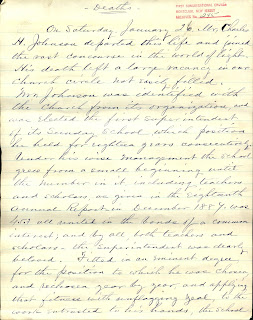 - Deaths -
On Saturday January 26, Mr. Charles
H. Johnson departed this life and joined
the vast concourse in the world of light.
His death left a large vacancy in our
Church circle not easily filled.
Mr. Johnson was identified with
the Church from its organization, and
was elected the first Superintendent
of its Sunday School which position
he held for eighteen years consecutively.
Under his wise management the School
grew from a small beginning until
the number in it including teachers
and scholars, as given in the Eighteenth
Annual Report in December 1887, was
all united in the bonds of a common
interest; and by all both teachers and
scholars - the Superintendent was dearly
beloved. Fitted in an eminent degree
for the position to which he was chosen
and rechosen year by year, and applying
that fitness with unflagging zeal, to the
work intrusted to his hands, the School